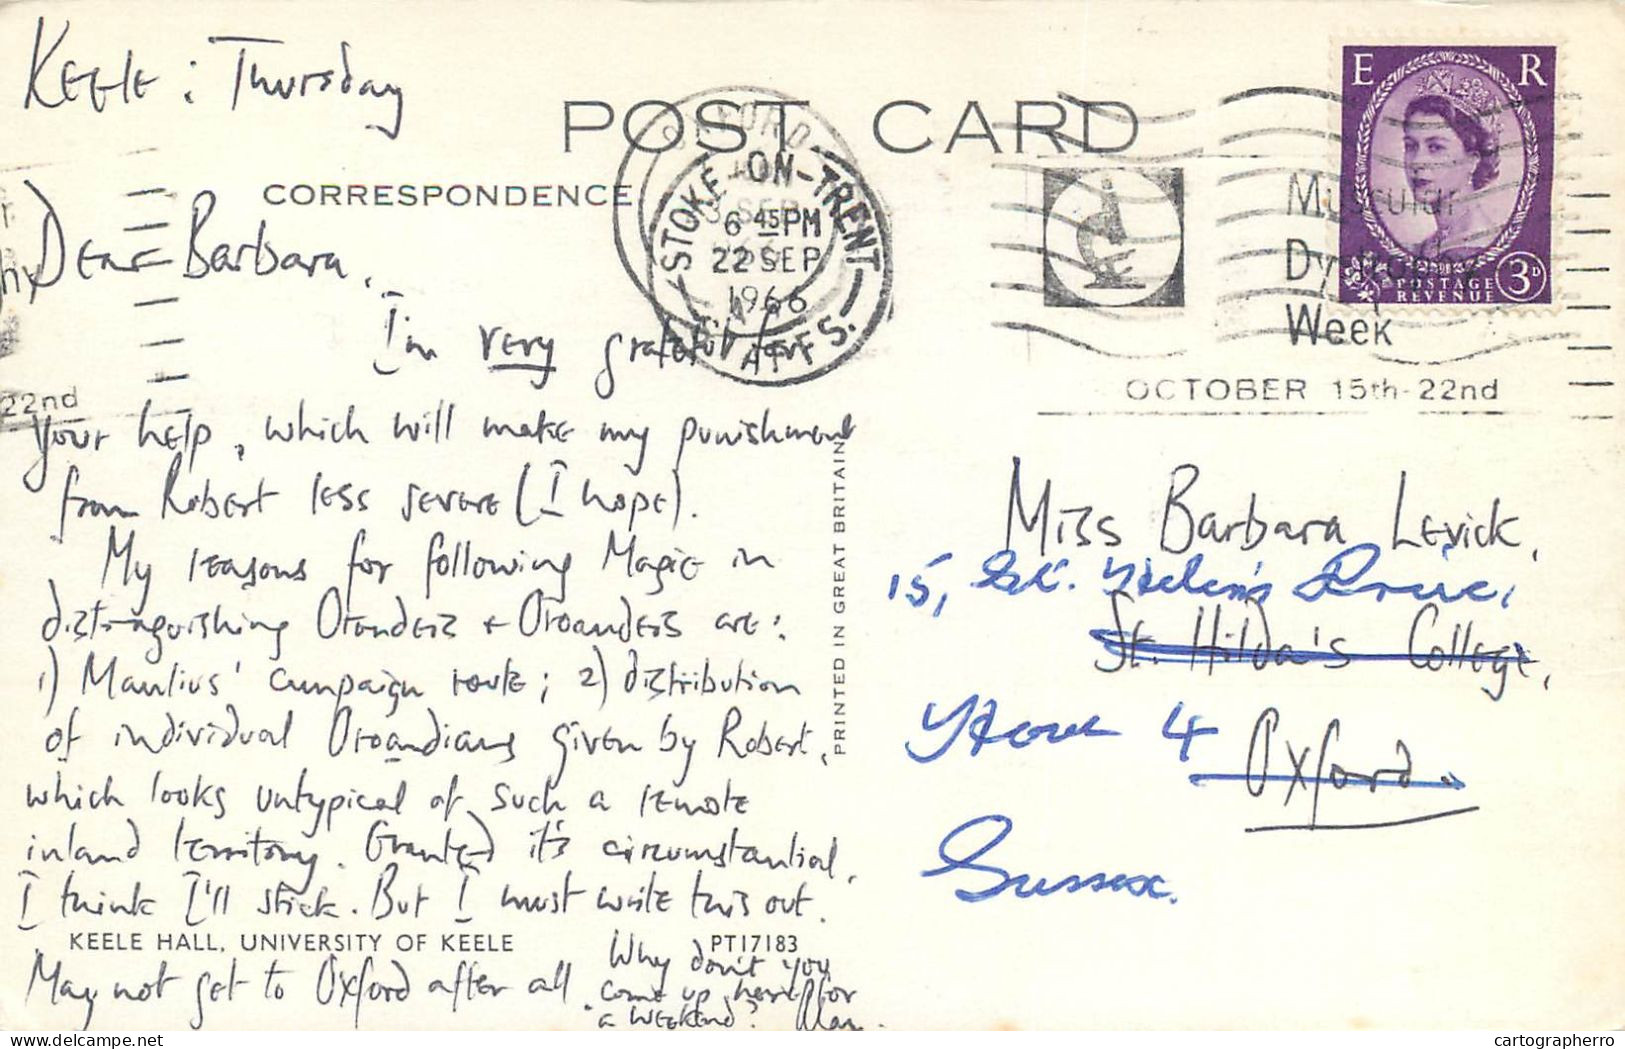 Keele : Thursday
POST CARD
CORRESPONDENCE
STOKE-ON-TRENT
6 45 PM
22 SEP
1966
STAFFS.
OXFORD
SEP
E R
POSTAGE
REVENUE
3D
Muscular
Dystrophy
Week
OCTOBER 15th-22nd
22nd
Dear Barbara,
I'm very grateful for
your help, which will make my punishment
from Robert less severe (I hope).
My reasons for following Magie in
distinguishing Orondeis + Oroandeis are:
1) Manlius' campaign route; 2) distribution
of individual Oroandians given by Robert,
which looks untypical of such a remote
inland territory. Granted it's circumstantial,
I think I'll stick. But I must write this out.
KEELE HALL, UNIVERSITY OF KEELE
PT17183
May not get to Oxford after all.
Why don't you
come up here for
a weekend? Alan.
PRINTED IN GREAT BRITAIN
Miss Barbara Levick,
15, St. Helen's Drive,
St. Hilda's College,
Hove 4
Oxford.
Sussex.
cartographerro